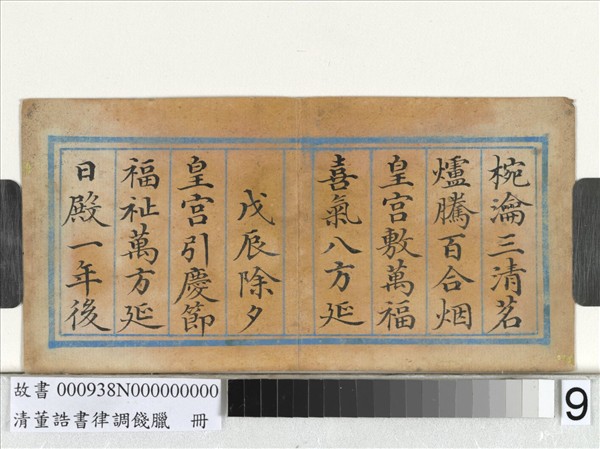 椀瀹三清茗
爐騰百合烟
皇宮敷萬福
喜氣八方延
戊辰除夕
皇宮引慶節
福祉萬方延
日殿一年後
故書 000938N000000000
清董誥書律調餞臘 冊
9